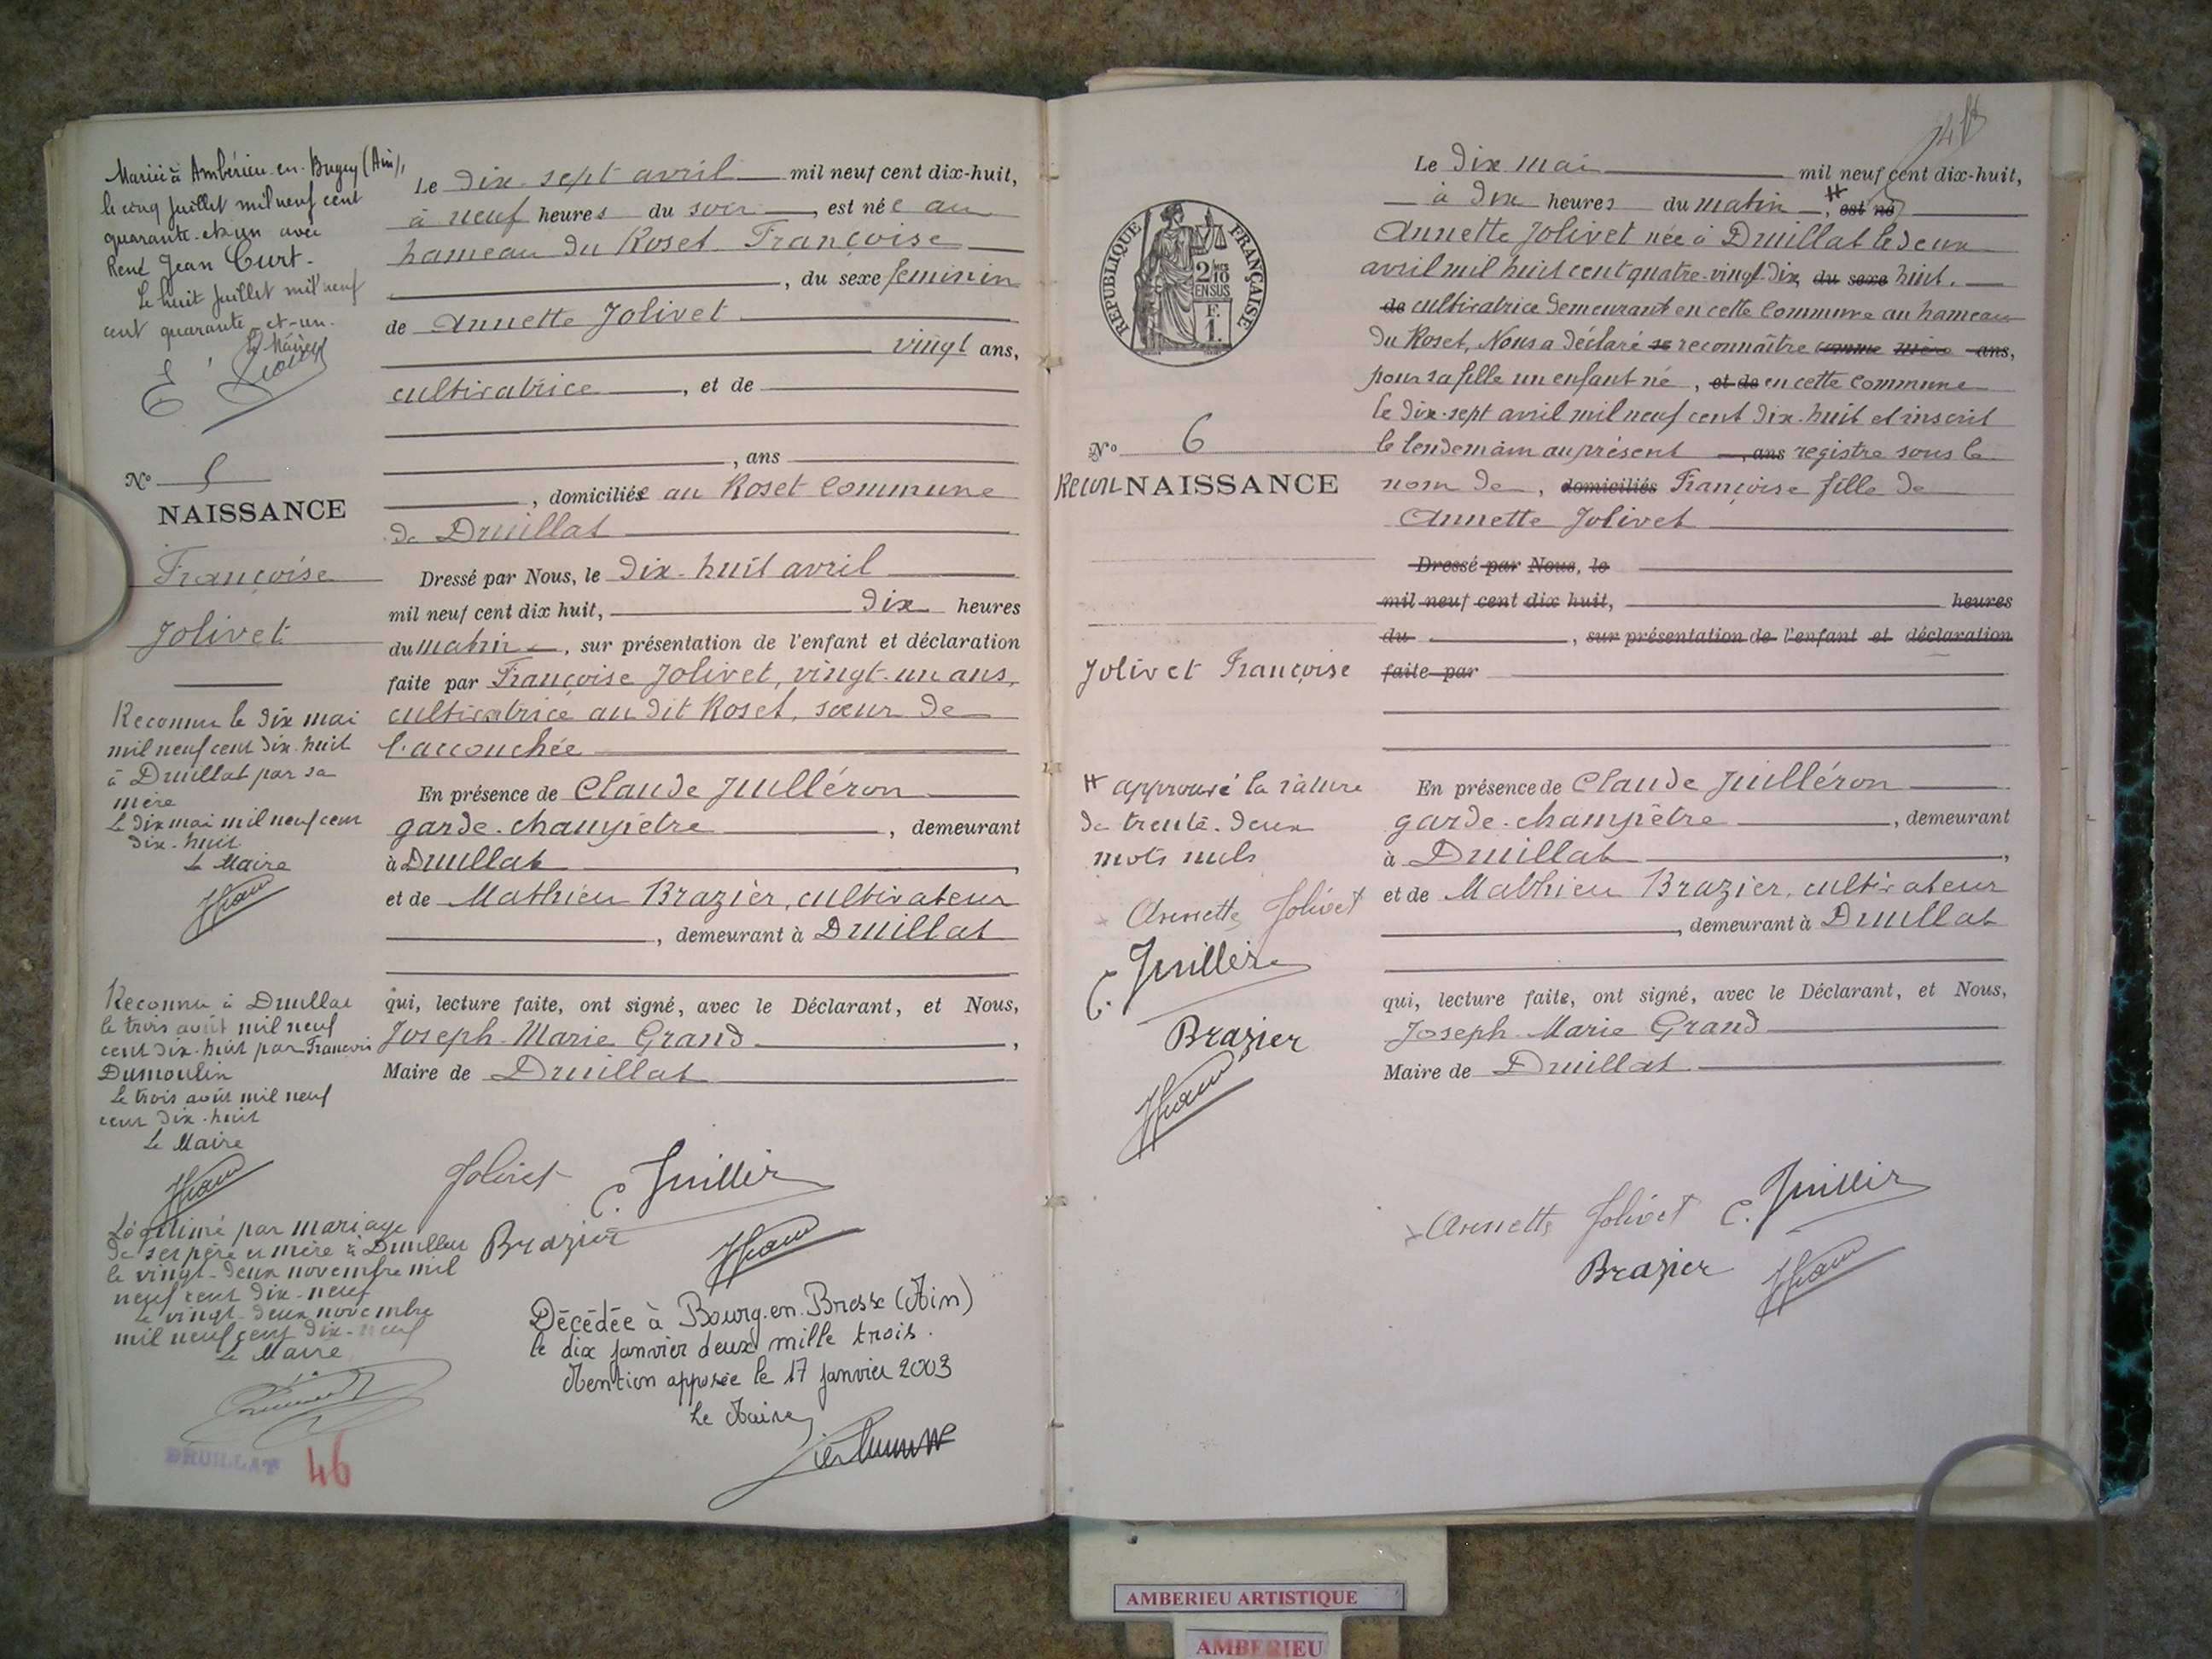 Mariée à Ambérieu-en-Bugey (Ain),
le cinq Juillet mil neuf cent
quarante-et-un avec
René Jean Curt.
Le huit Juillet mil neuf
cent quarante-et-un.
Le Maire
No 5
NAISSANCE
Françoise
Jolivet
Reconnu le dix mai
mil neuf cent dix-huit
à Druillat par sa
mère
Le dix mai mil neuf cent
dix-huit
Le Maire
Reconnu à Druillat
le trois août mil neuf
cent dix-huit par François
Dumoulin
Le trois août mil neuf
cent dix-huit
Le Maire
Légitimé par mariage
de ses père et mère à Druillat
le vingt-deux novembre mil
neuf cent dix-neuf
Le vingt-deux novembre
mil neuf cent dix-neuf
Le Maire
DRUILLAT 46
Le dix-sept avril mil neuf cent dix-huit,
à neuf heures du soir, est née au
hameau du Roset Françoise
, du sexe feminin
de Annette Jolivet
vingt ans,
cultivatrice, et de
, ans
, domiciliée au Roset commune
de Druillat
Dressé par Nous, le dix-huit avril
mil neuf cent dix huit, dix heures
du matin, sur présentation de l'enfant et déclaration
faite par Françoise Jolivet, vingt-un ans,
cultivatrice au dit Roset, sœur de
l'accouchée
En présence de Claude Juilléron
garde-champêtre, demeurant
à Druillat,
et de Mathieu Brazier, cultivateur
, demeurant à Druillat
qui, lecture faite, ont signé, avec le Déclarant, et Nous,
Joseph Marie Grand,
Maire de Druillat
Jolivet C. Juillér
Brazier
Décédée à Bourg-en-Bresse (Ain)
le dix janvier deux mille trois.
Mention apposée le 17 janvier 2003
Le Maire,
RÉPUBLIQUE FRANÇAISE
2/10
EN SUS
F.
1.
No 6
ReconNAISSANCE
Jolivet Françoise
H approuvé la rature
de trente-deux
mots nuls
Annette Jolivet
C. Juillér
Brazier
Le dix mai mil neuf cent dix-huit,
à dix heures du matin, H est né
Annette Jolivet née à Druillat le deux
avril mil huit cent quatre-vingt-dix du sexe huit.
de cultivatrice demeurant en cette commune au hameau
du Roset, Nous a déclaré reconnaître comme mère ans,
pour sa fille un enfant né, et de en cette commune
le dix-sept avril mil neuf cent dix-huit et inscrit
le lendemain au présent , ans registre sous le
nom de, domiciliés Françoise fille de
Annette Jolivet
Dressé par Nous, le
mil neuf cent dix huit, heures
du , sur présentation de l'enfant et déclaration
faite par
En présence de Claude Juilléron
garde-champêtre, demeurant
à Druillat,
et de Mathieu Brazier, cultivateur
, demeurant à Druillat
qui, lecture faite, ont signé, avec le Déclarant, et Nous,
Joseph Marie Grand
Maire de Druillat
Annette Jolivet C. Juillér
Brazier
AMBERIEU ARTISTIQUE
AMBERIEU